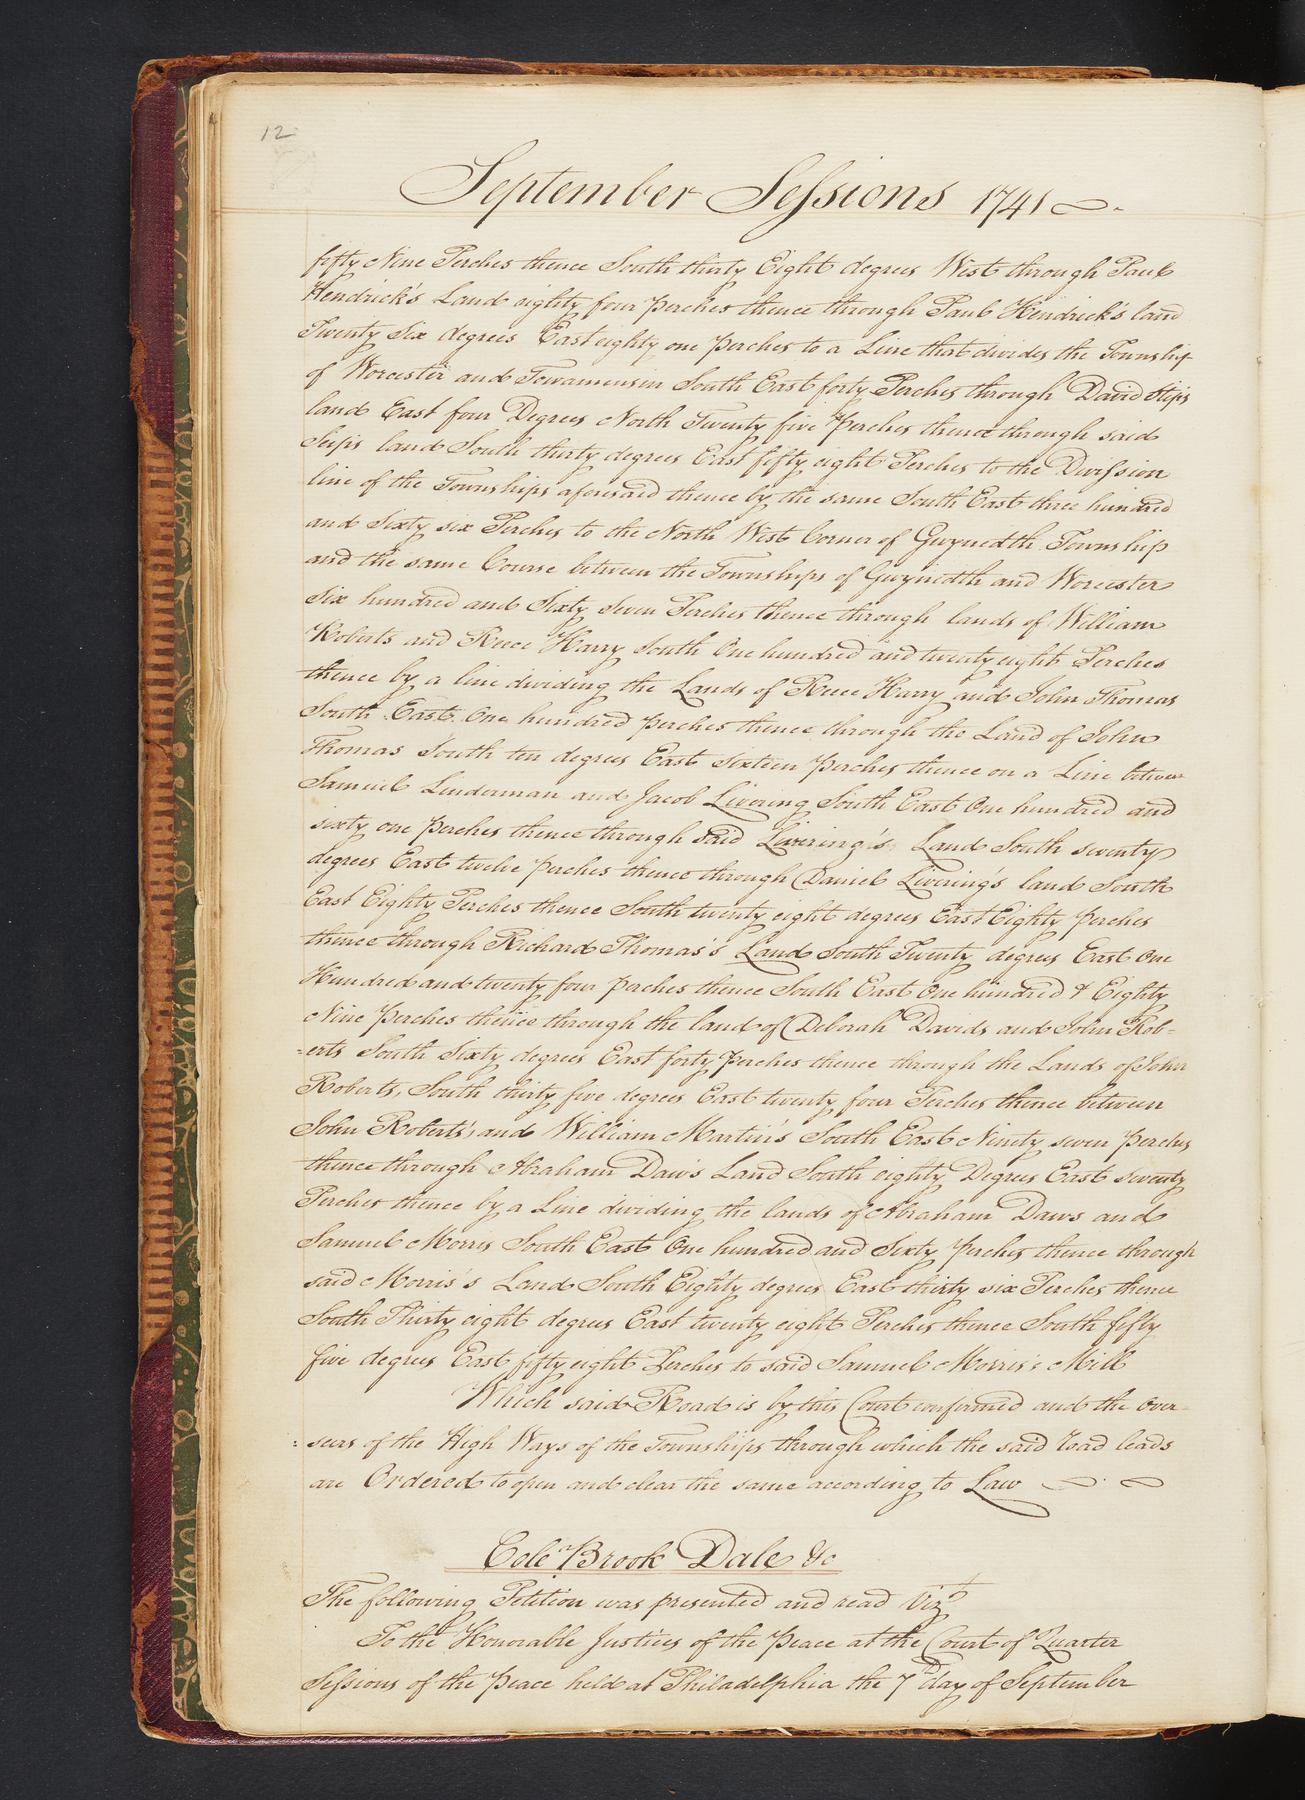 12
September Sessions 1741
fifty Nine Perches thence South thirty Eight degrees West through Paul
Hendrick's Land eighty four perches thence through Paul Hendrick's land
Twenty Six degrees East eighty one perches to a Line that divides the Township
of Worcester and Towamensin South East forty Perches through David
land East four Degrees North Twenty five Perches thence through said
land South thirty degrees East fifty eight Perches to the Division
line of the Townships aforesaid thence by the same South East three hundred
and Sixty six Perches to the North West Corner of Gwynedth Township
and the same Course between the Townships of Gwynedth and Worcester
Six hundred and Sixty Seven Perches thence through lands of William
Roberts and Reece Harry South One hundred and twenty eight Perches
thence by a line dividing the Lands of Reece Harry and John Thomas
South East One hundred perches thence through the Land of John
Thomas South ten degrees East Sixteen perches thence on a Line between
Samuel Linderman and Jacob Livering South East One hundred and
sixty one perches thence through said Livering's Land South seventy
degrees East twelve perches thence through Daniel Livering's land South
East Eighty Perches thence South twenty eight degrees East Eighty perches
thence through Richard Thomas's Land South Twenty degrees East One
Hundred and twenty four perches thence South East One hundred & Eighty
Nine perches thence through the land of Deborah Davids and John Rob-
-erts South Sixty degrees East forty perches thence through the Lands of John
Roberts, South thirty five degrees East twenty four Perches thence between
John Roberts's and William Martin's South East Ninety seven perches
thence through Abraham Daws Land South eighty Degrees East seventy
Perches thence by a Line dividing the lands of Abraham Daws and
Samuel Morris South East One hundred and Sixty perches thence through
said Morris's Land South Eighty degrees East thirty six Perches thence
South Thirty eight degrees East twenty eight Perches thence South fifty
five degrees East fifty eight Perches to said Samuel Morris's Mill
Which said Road is by this Court confirmed and the Over-
:seers of the High Ways of the Townships through which the said road leads
are Ordered to open and clear the same according to Law
Cole Brook Dale &c
The following Petition was presented and read Vizt
To the Honorable Justices of the Peace at the Court of Quarter
Sessions of the Peace held at Philadelphia the 7th day of September